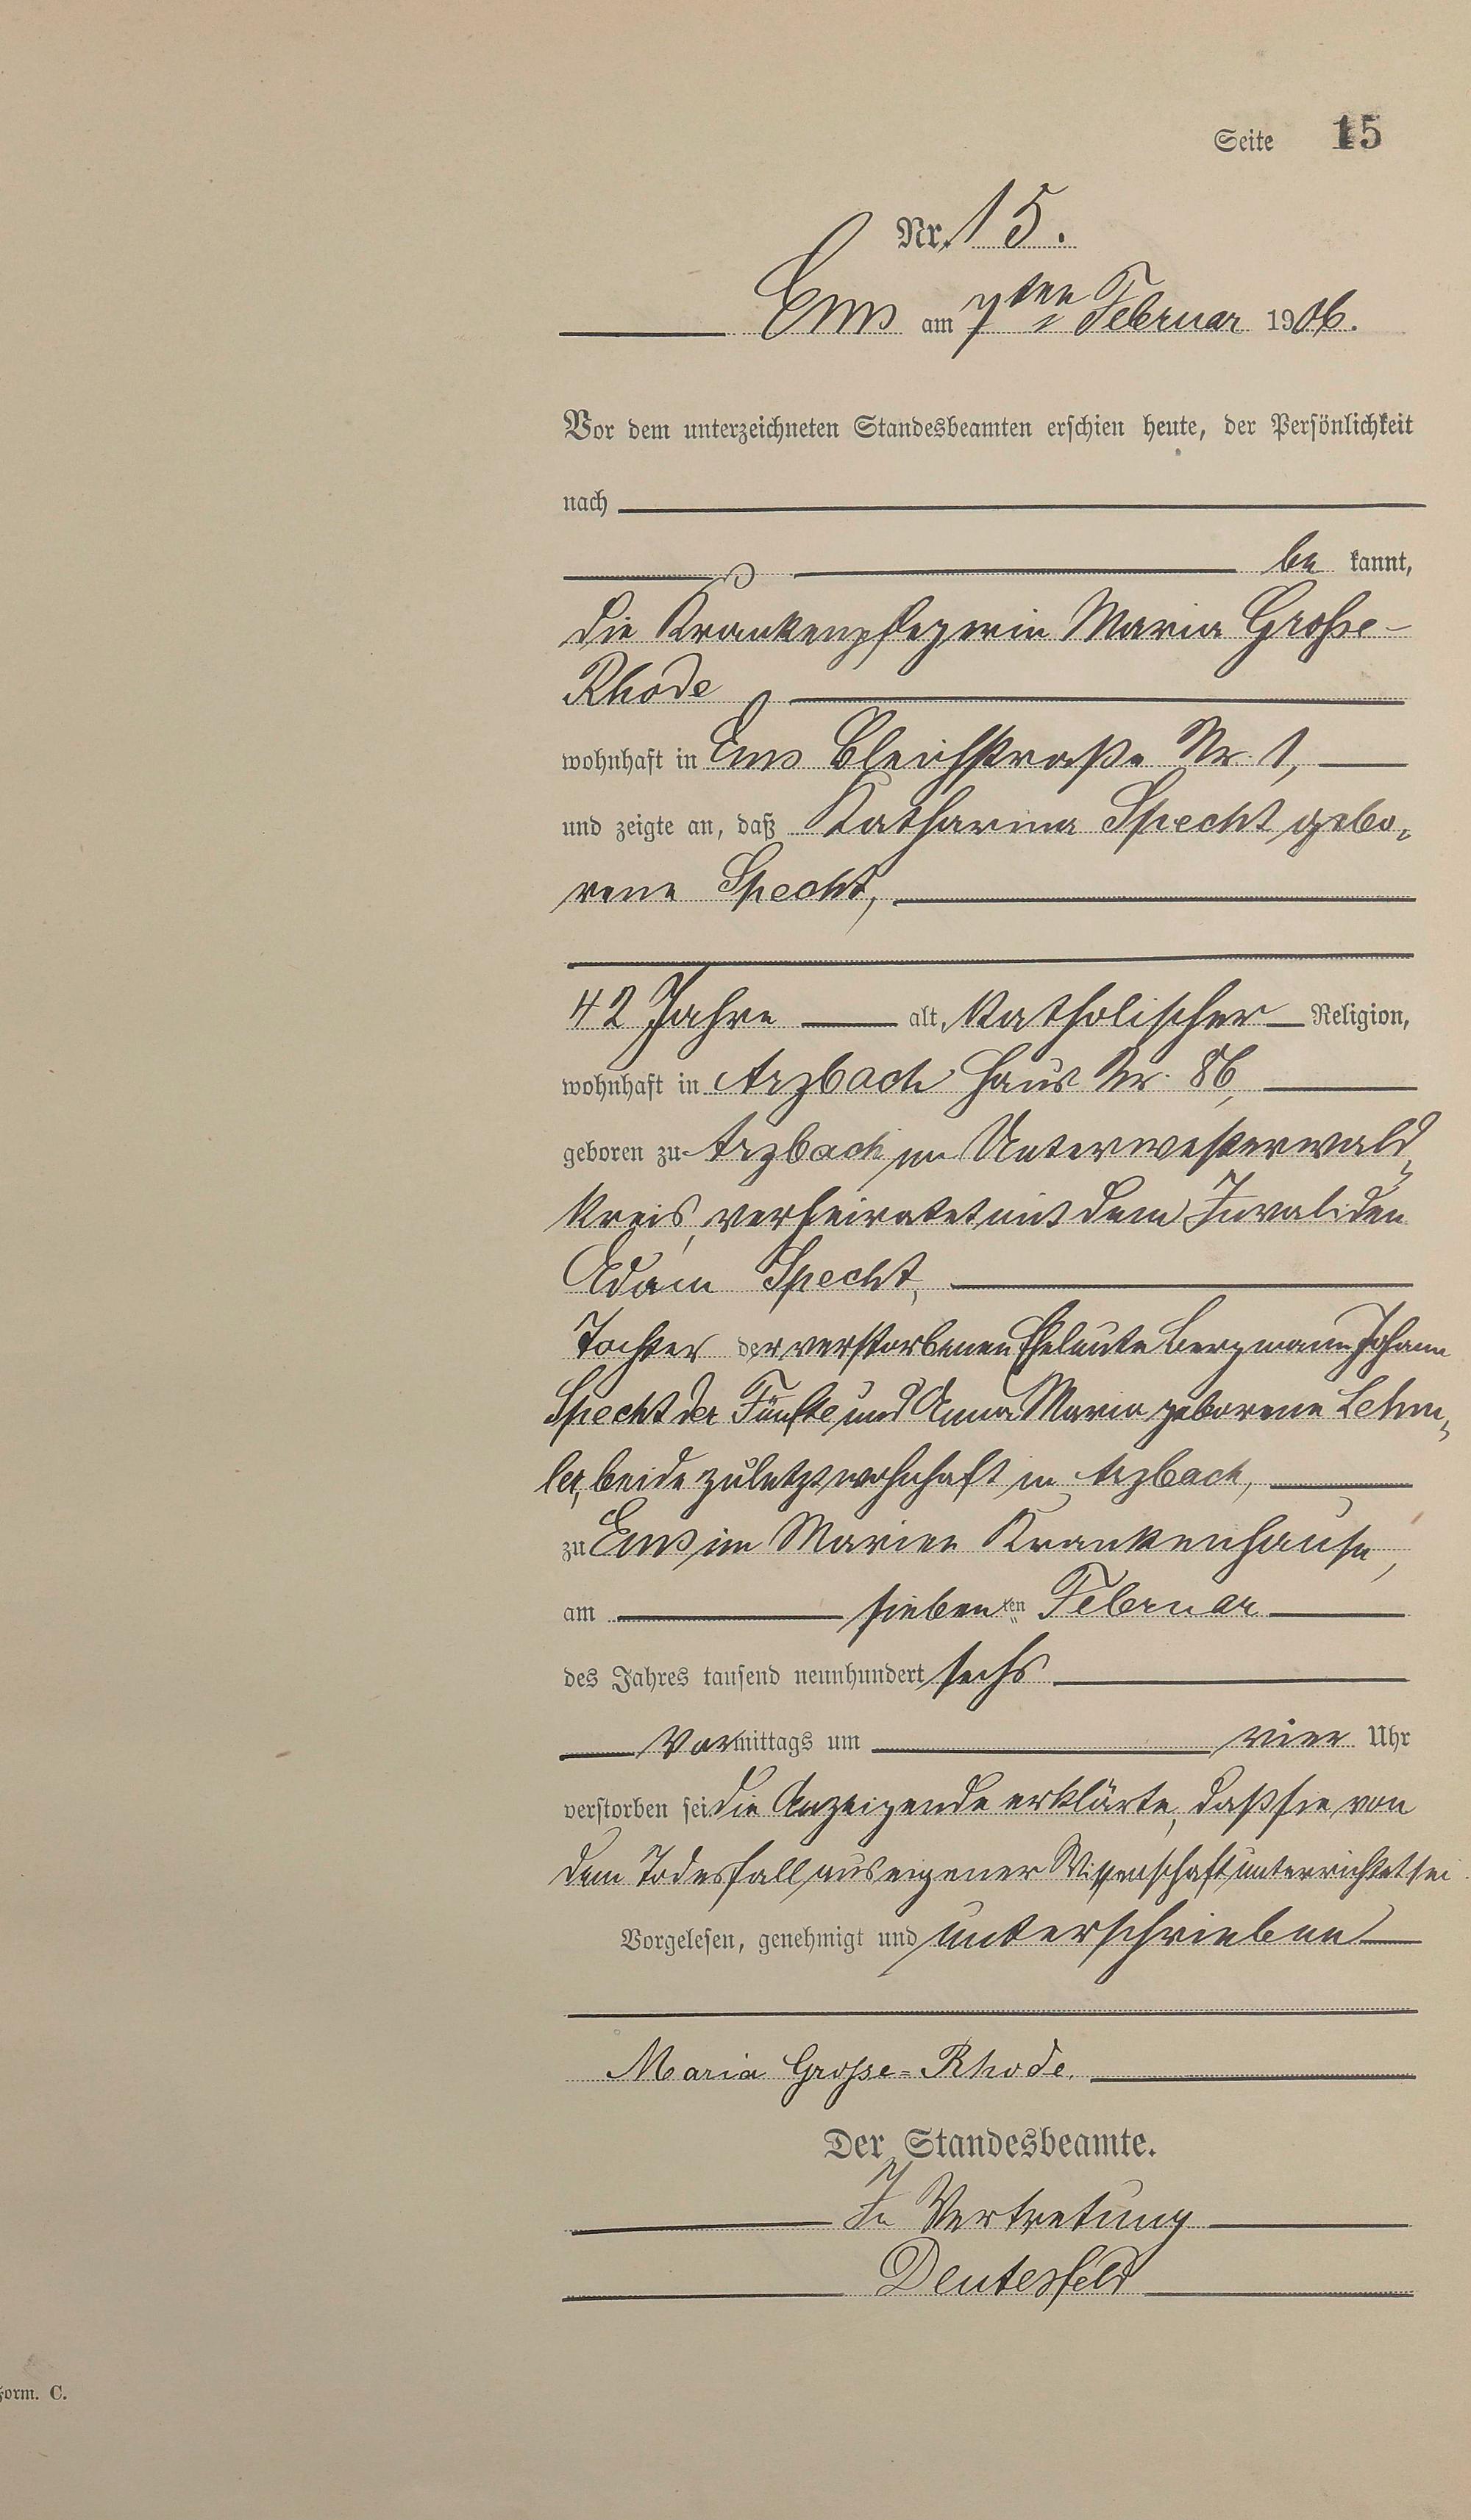 Seite 15
Nr. 15.
Ems am 7ten Februar 1906.
Vor dem unterzeichneten Standesbeamten erschien heute, der Persönlichkeit
nach
be kannt,
die Krankenpflegerin Maria Große-
Rhode
wohnhaft in Ems Bleichstraße Nr. 1,
und zeigte an, daß Katharina Specht gebo-
rene Specht,
42 Jahre alt, katholischer Religion,
wohnhaft in Arzbach Haus Nr. 86,
geboren zu Arzbach im Unterwesterwald-
kreis, verheiratet mit dem Invaliden
Adam Specht,
Tochter der verstorbenen Eheleute Bergmann Johann
Specht der Fünfte und Anna Maria geborene Lehm-
ler, beide zuletzt wohnhaft in Arzbach,
zu Ems im Marien Krankenhause,
am siebenten Februar
des Jahres tausend neunhundert sechs
Vormittags um vier Uhr
verstorben sei die Anzeigende erklärte, daß sie von
dem Todesfall aus eigener Wissenschaft unterrichtet sei.
Vorgelesen, genehmigt und unterschrieben
Maria Grosse=Rhode.
Der Standesbeamte.
In Vertretung
Deutesfeld
Form. C.